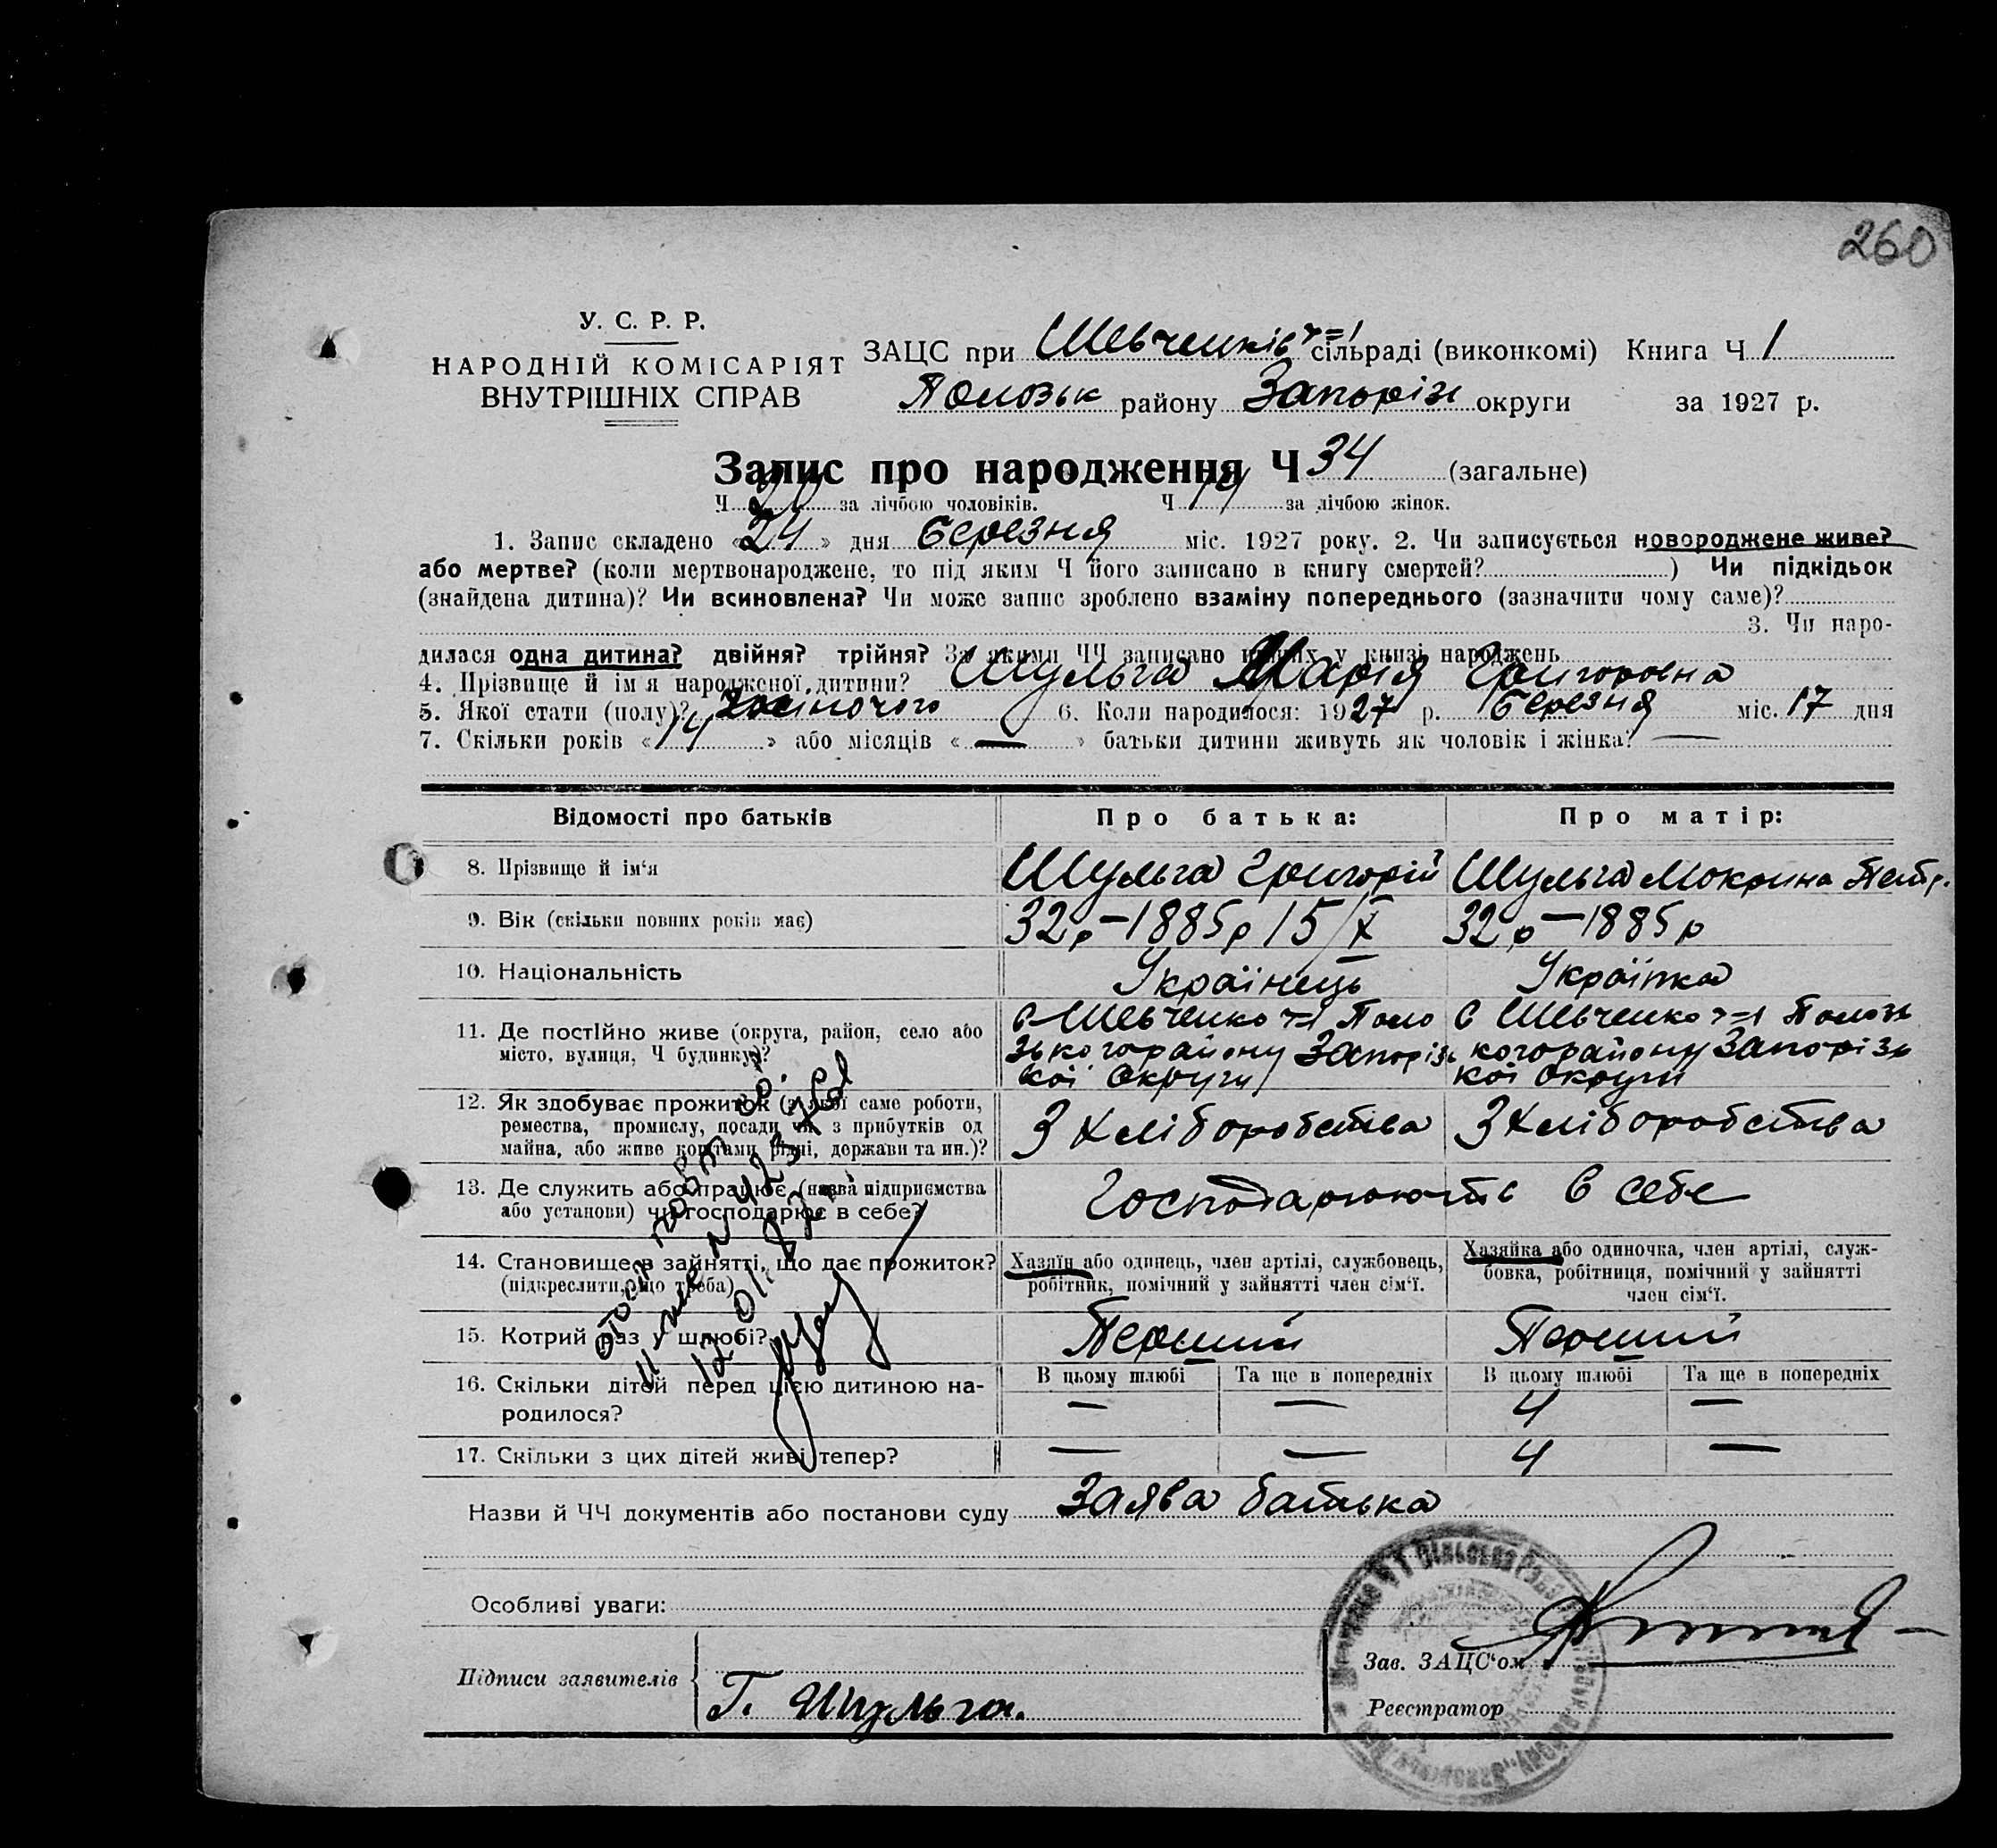 260
У. С. Р. Р.
НАРОДНІЙ КОМІСАРІЯТ
ВНУТРІШНІХ СПРАВ
ЗАЦС при Шевченків ч=1 сільраді (виконкомі) Книга Ч 1
Пологьк району Запоріз округи за 1927 р.
Запис про народження Ч 34 (загальне)
Ч 20 за лічбою чоловіків. Ч 14 за лічбою жінок.
1. Запис складено «24» дня березня міс. 1927 року. 2. Чи записується новороджене живе?
або мертве? (коли мертвонароджене, то під яким Ч його записано в книгу смертей? ) Чи підкідьок
(знайдена дитина)? Чи всиновлена? Чи може запис зроблено взаміну попереднього (зазначити чому саме)?
3. Чи наро-
дилася одна дитина? двійня? трійня? За якими ЧЧ записано инших у книзі народжень
4. Прізвище й ім'я народженої дитини? Шульга Марія Григоровна
5. Якої стати (полу)? жіночого 6. Коли народилося: 1927 р. березня міс. 17 дня
7. Скільки років «14» або місяців «—» батьки дитини живуть як чоловік і жінка? —
Відомості про батьків Про батька: Про матір:
8. Прізвище й ім'я Шульга Григорій Шульга Мокрина Петр.
9. Вік (скільки повних років має) 32 р – 1885 р 15/X 32 р – 1885 р
10. Національність Українець Українка
11. Де постійно живе (округа, район, село або
місто, вулиця, Ч будинку)?
с Шевченко ч=1 Поло
зького району Запорізь
кої Округи
с Шевченко ч=1 Пологь
кого району Запорізь
кої округи
12. Як здобуває прожиток (з якої саме роботи,
ремества, промислу, посади чи з прибутків од
майна, або живе коштами рідні, держави та ин.)?
З хліборобства З хліборобства
13. Де служить або працює (назва підприємства
або установи) чи господарює в себе?
Господарюють в себе
14. Становище в зайнятті, що дає прожиток?
(підкреслити, що треба)
Хазяїн або одинець, член артілі, службовець,
робітник, помічний у зайнятті член сім'ї.
Хазяйка або одиночка, член артілі, служ-
бовка, робітниця, помічний у зайнятті
член сім'ї.
15. Котрий раз у шлюбі? Перший Перший
В цьому шлюбі Та ще в попередніх В цьому шлюбі Та ще в попередніх
16. Скільки дітей перед цією дитиною на-
родилося?
— — 4 —
17. Скільки з цих дітей живі тепер? — — 4 —
Назви й ЧЧ документів або постанови суду Заява батька
Особливі уваги:
Підписи заявителів Г. Шульга.
Зав. ЗАЦС'ом
Реєстратор